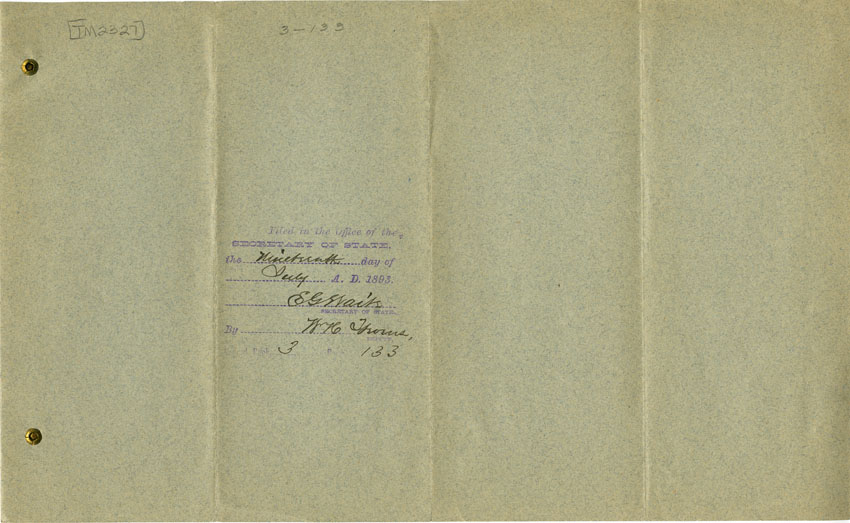 [TM2327]
3-133
Filed in the Office of the
SECRETARY OF STATE,
the Nineteenth day of
July A. D. 1893.
E G Waite
SECRETARY OF STATE.
By W H
DEPUTY.
3 133